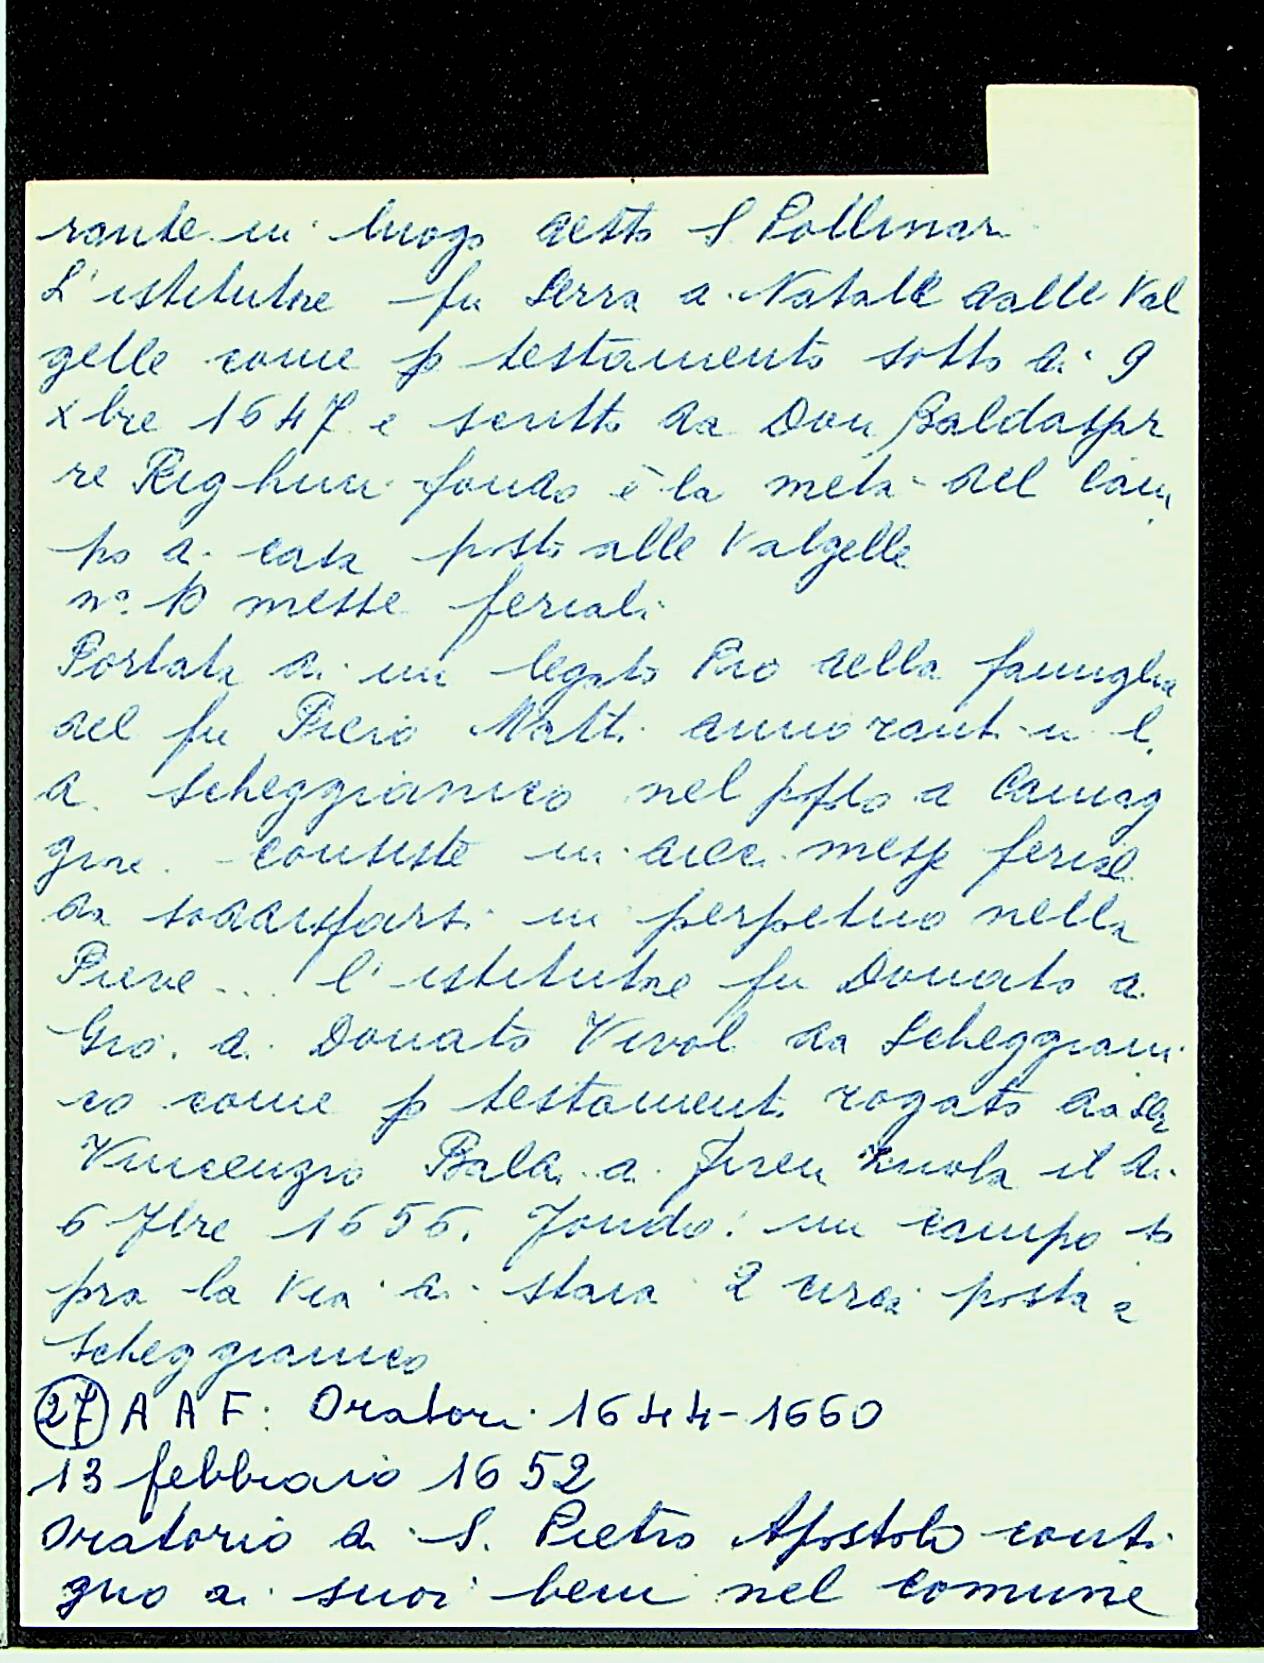 rante in luogo detto S Pollinari
L'istitutne fu Serra di Natale dalle Val
gelle come p testamento sotto di 9
xbre 1647 e scritto da Don Baldassar
re Righini fondo è la metà del cam
po di casa posto alle Valgelle
n° 10 messe feriali
Portata di un legato Pio della famiglia
del fu Piero Matt. dimorant in l.
di Scheggianico nel pplo a Camag
giore consiste in dieci messe ferial
da soddisfarsi in perpetuo nella
Pieve... l'istitutne fu Donato di
Gio. di Donato Vivol da Scheggiani
co come p testament. rogato da Ser
Vincenzio Bald. di Firenzuola il di
6 7bre 1656. Fondo: un campo so
pra la Via di staia 2 circa posta a
Scheggianico
27 A A F: Oratori 1644-1660
13 febbraio 1652
Oratorio di S. Pietro Apostolo conti
guo ai suoi beni nel comune